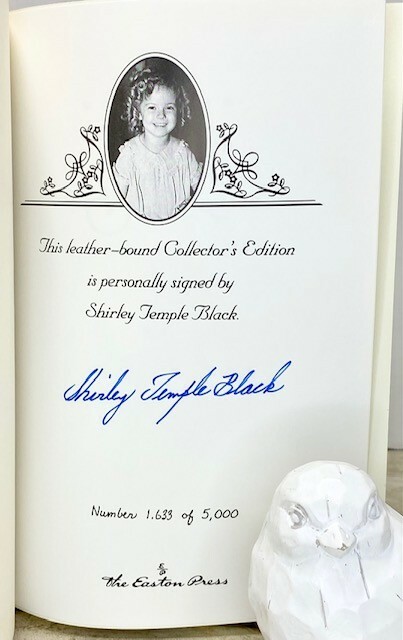 This leather-bound Collector's Edition
is personally signed by
Shirley Temple Black.
Shirley Temple Black
Number 1.633 of 5,000
E/P
The Easton Press